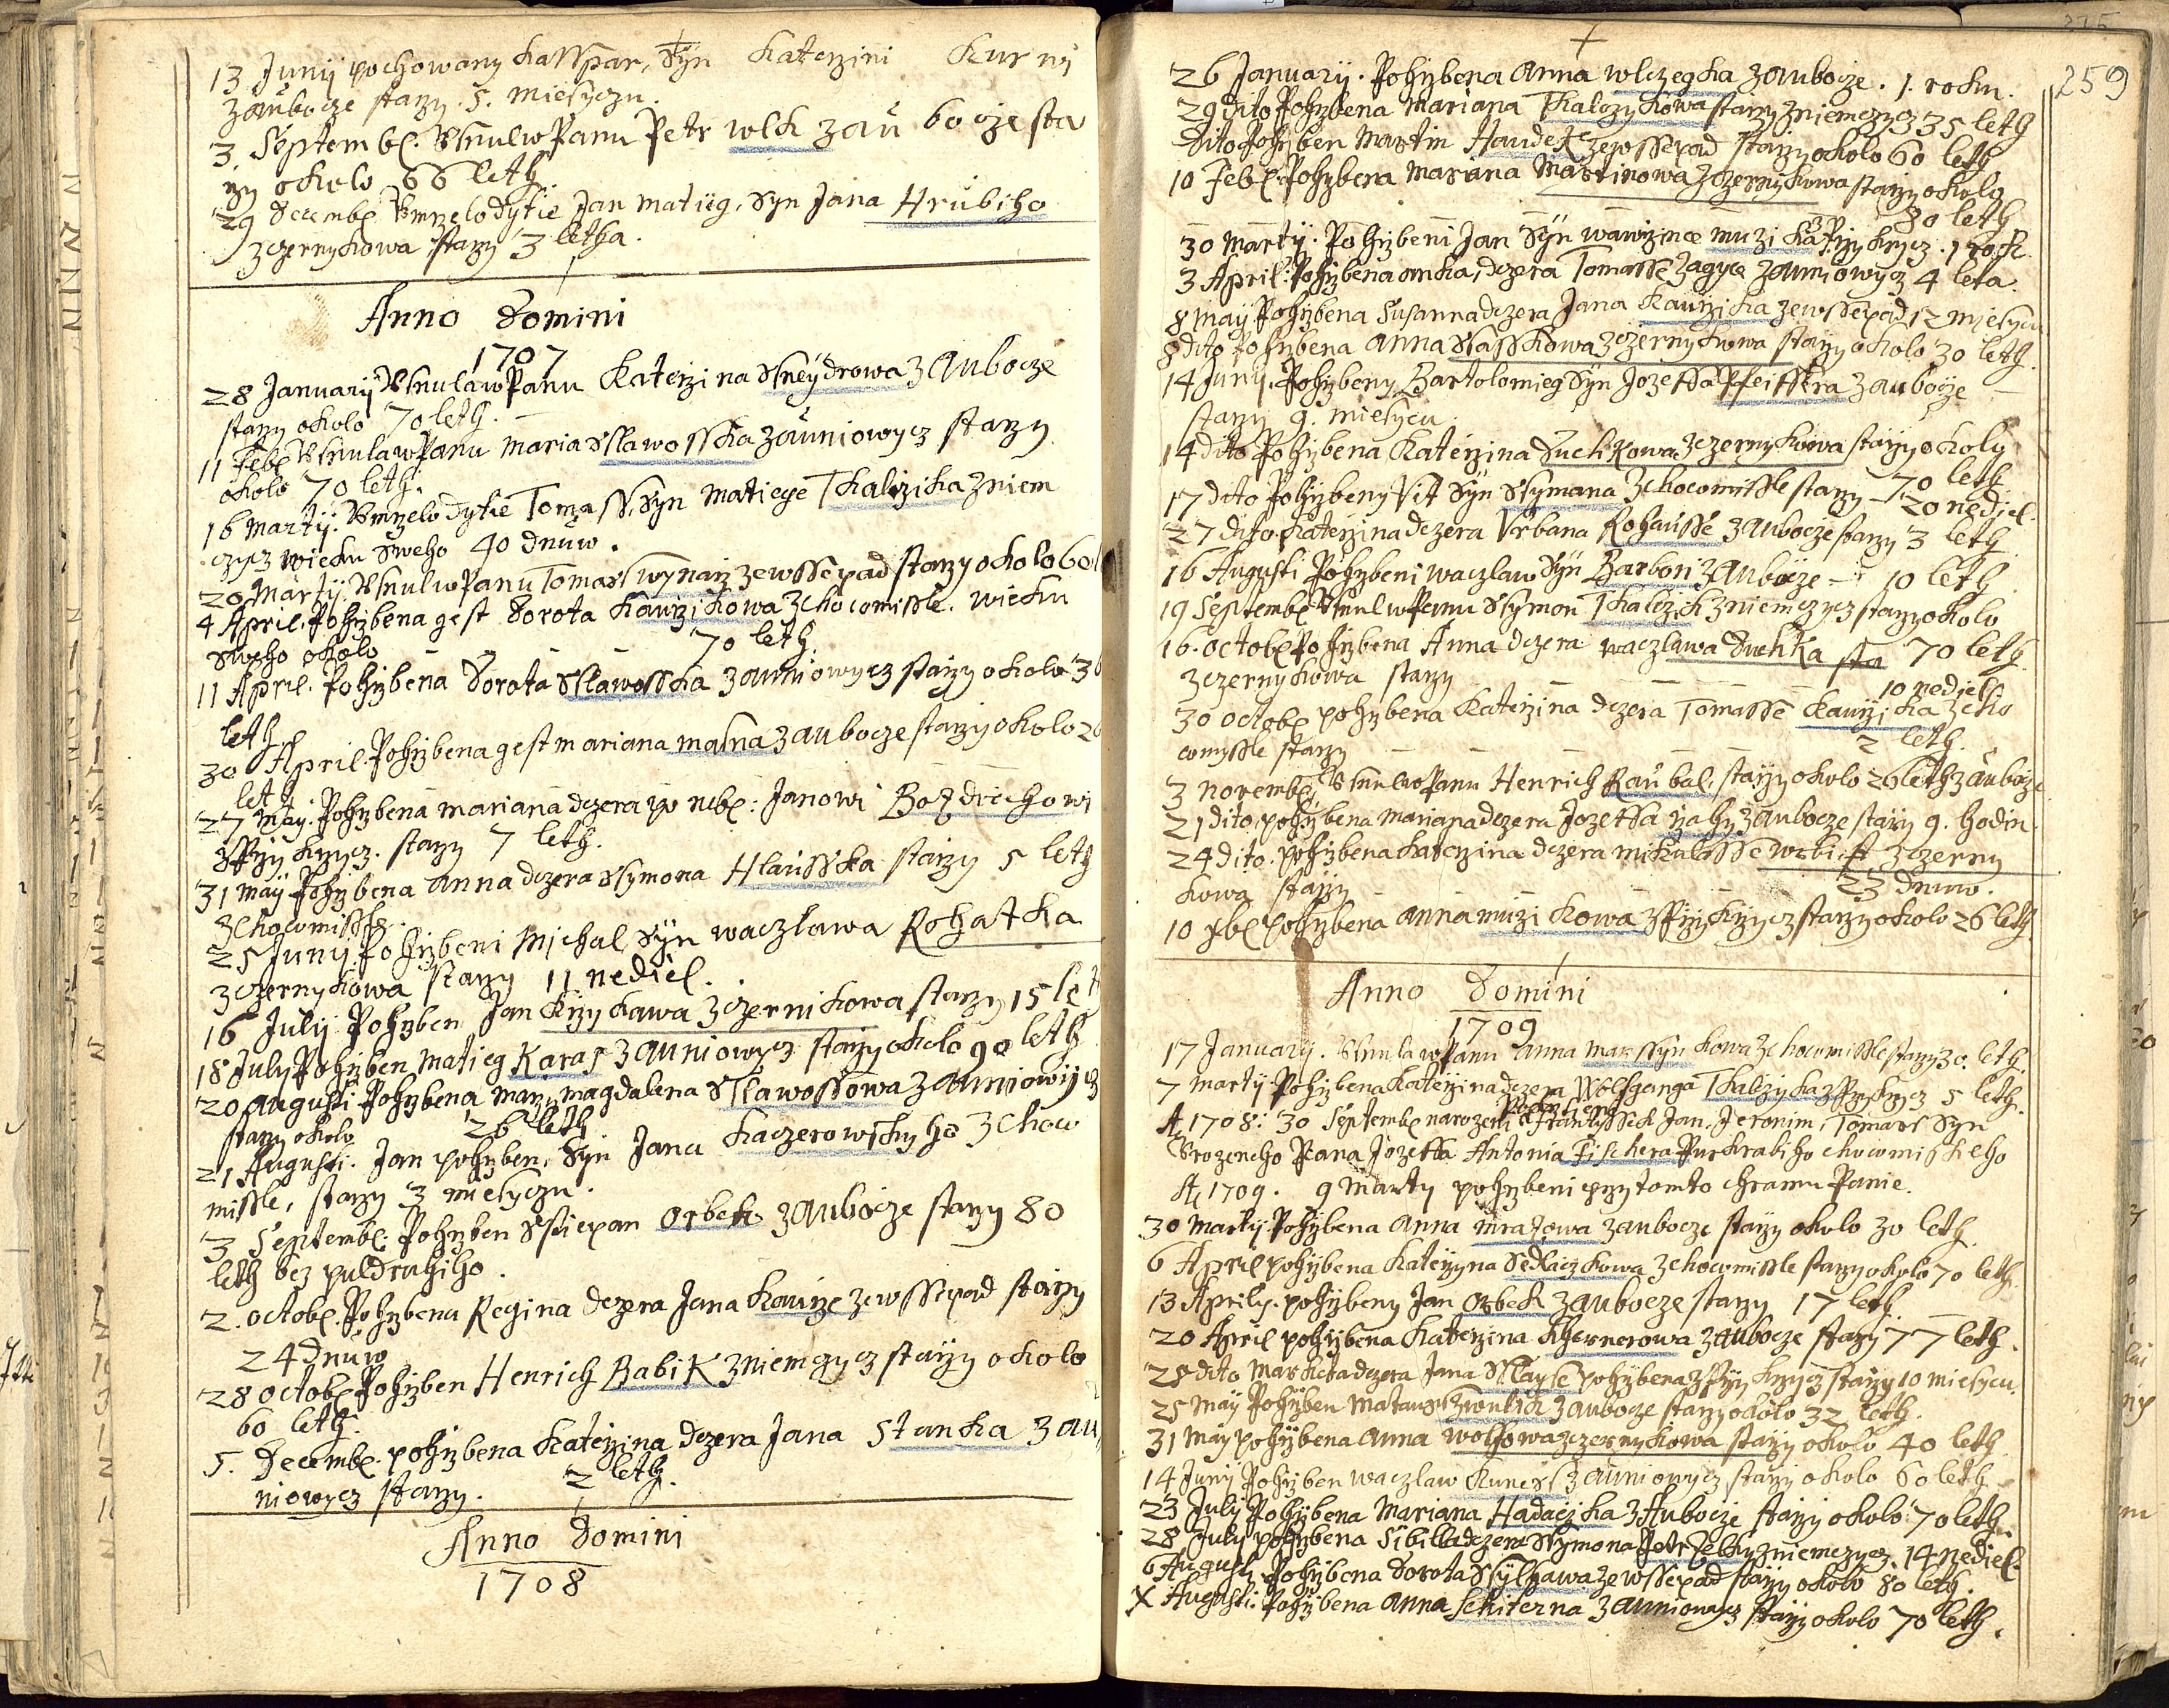 13 Junij pochowany Kasspar, Syn Katerzini Kurnj
zaubocze starzy. 5. miesyczu.
3. Septembr. Vsnul w Panu Petr Wlk zau bocze sta
rzy okolo 66 leth
29 Decembr. Vmrzelo dytie Jan Matieg, Syn Jana Hrubiho
z czernykowa starzy 3 letha.
Anno Domini
1707
28 Januarij Vsnula w Panu Katerzina Sneydrowa z Aubocze
starzy okolo 70 leth.
11 Febr. Vsnula w Panu Maria Slawosska z auniowycz starzy
okolo 70 leth.
16 Martij. Vmrzelo dytie Tomass, Syn Matiege Tkalczika z niem
czycz wieku sweho 40 dnuw.
20 Martij. Vsnul w Panu Tomass wynarz ze wssepad starzy okolo 60 l
4 April. Pohrzbena gest Dorota Kaurzikowa z chocomissle. wieku
sweho okolo 70 leth.
11 April. Pohrzbena Dorota Slawosska z auniowycz starzy okolo 36
leth.
30 April. Pohrzbena gest Mariana Masna z aubocze starzy okolo 26
leth
27 May. Pohrzbena Mariana dczera po neb: Janowi Bozdiechowi
z Przykrzycz. starzy 7 leth.
31 Maij Pohrzbena Anna dczera Ssymona Hlaussika starzy 5 leth
z chocomissle.
25 Junij Pohrzbeni Michal Syn Waczlawa Rohatka
z czernykowa starzy 11 nediel.
16 Julij Pohrzben Jan Krzykawa z czernikowa starzy 15 let
18 July Pohrzben Matieg Karas z auniowycz starzy okolo 90 leth
20 Augusti Pohrzbena Marz. Magdalena Slawossowa z auniowycz
starzy okolo 26 leth
21 Augusti. Jan pohrzben, Syn Jana Kaczerowskyho z choco
missle, starzy 3 miesyczu.
3 Septembr. Pohrzben Sstiepan Orbek z aubocze starzy 80
leth bez puldruhiho.
2. Octobr. Pohrzbena Regina dczera Jana Kaurze ze wssepad starzy
24 dnuw
28 Octobr. Pohrzben Henrich Babik z niemczycz starzy okolo
60 leth.
5. Decembr. pohrzbena Katerzina dczera Jana Stanka z au
niowycz starzy. 2 leth.
Anno Domini
1708
259
26 Januarij. Pohrzbena Anna Wlczegka z aubocze. 1. roku.
29 dito Pohrzbena Mariana Tkalczykowa starzy z niemczycz 35 leth
Dito Pohrzben Martin Haudek ze wssepad starzy okolo 60 leth
10 Febr. Pohrzbena Mariana Martinowa z czernykowa starzy okolo
30 leth
30 Martij. Pohrzbeni Jan Syn Wawrzince Muzika z Przykrzycz. 1 rok.
3 April. Pohrzbena Anka, dczera Tomasse Zagyce z auniowycz 4 leta.
8 Maij Pohrzbena Susanna dczera Jana Kaurzika ze wssepad 12 miesycu
8 dito Pohrzbena Anna Stasskowa z czernykowa starzy okolo 30 leth.
14 Junij. Pohrzbeny Bartolomieg Syn Jozeffa Pfeiffera z aubocze
starzy 9. miesycu
14 dito Pohrzbena Katerzina Duchkowa z czernykowa starzy okoly
70 leth
17 dito Pohrzbeny Vit Syn Ssymana z chocomissle starzy – 20 nediel.
27 dito. Katerzina dczera Vrbana Rohausse z aubocze starzy 3 leth
16 Augusti Pohrzbeni Waczlaw Syn Barbori z aubocze – 10 leth
19 Septembr. Vsnul w Panu Ssymon Tkalczik z niemczycz starzy okolo
70 leth
16. Octobr. Pohrzbena Anna dczera Waczlawa Duchka
z czernykowa starzy 10 nediel.
30 Octobr. pohrzbena Katerzina dczera Tomasse Kaurzika z cho
comyssle starzy 2 leth.
3 Novembr. Vsnul w Panu Henrich Raubal starzy okolo 26 leth z aubocze
21 dito pohrzbena Mariana dczera Jozeffa z aubocze starzy 9. hodin.
24 dito. pohrzbena Katerzina dczera Mikulasse z czerny
kowa starzy 23 dnuw.
10 Xbr. pohrzbena Anna Muzikowa z Przykrzycz starzy okolo 26 leth
Anno Domini
1709
17 Januarij. Vsnula w Panu Anna Marssynkowa z chocomissle starzy 30. leth.
7 Martij Pohrzbena Katerzina dczera Wolfganga Tkalczyka z Przykrzycz 5 leth.
A 1708: 30 Septembr. narozeni Frantissek Jan, Jeronim, Tomass Syn
Vrozeneho Pana Jozeffa Antonia Fischera Purkrabiho chocomiskeho
A 1709. 9 Marty pohrzbeni przy tomto chramu Panie.
30 Martij Pohrzbena Anna Mrazowa z aubocze starzy okolo 30 leth.
6 April pohrzbena Katerzyna Sedlaczkowa z chocomissle starzy okolo 70 leth.
13 Aprily. pohrzbeny Jan Orbek z aubocze starzy 17 leth.
20 April pohrzbena Katerzina Khernerowa z aubocze starzy 77 leth.
28 dito Marketa dczera Jana Slayse pohrzbena z Przykrzycz starzy 10 miesycu.
25 May Pohrzben Mataus z aubocze starzy okolo 32 leth.
31 May pohrzbena Anna Wolfowa z czernykowa starzy okolo 40 leth
14 Junij Pohrzben Waczlaw Kuness z auniowycz starzy okolo 60 leth
23 July Pohrzbena Mariana Hadaczka z Aubocze starzy okolo 70 leth
28 July pohrzbena Sibilla dczera Ssymona z niemczycz. 14 nediel.
6 Augusti Pohrzbena Dorota ze wssepad starzy okolo 80 leth.
X Augusti. Pohrzbena Anna Sekiterna z auniowycz starzy okolo 70 leth.